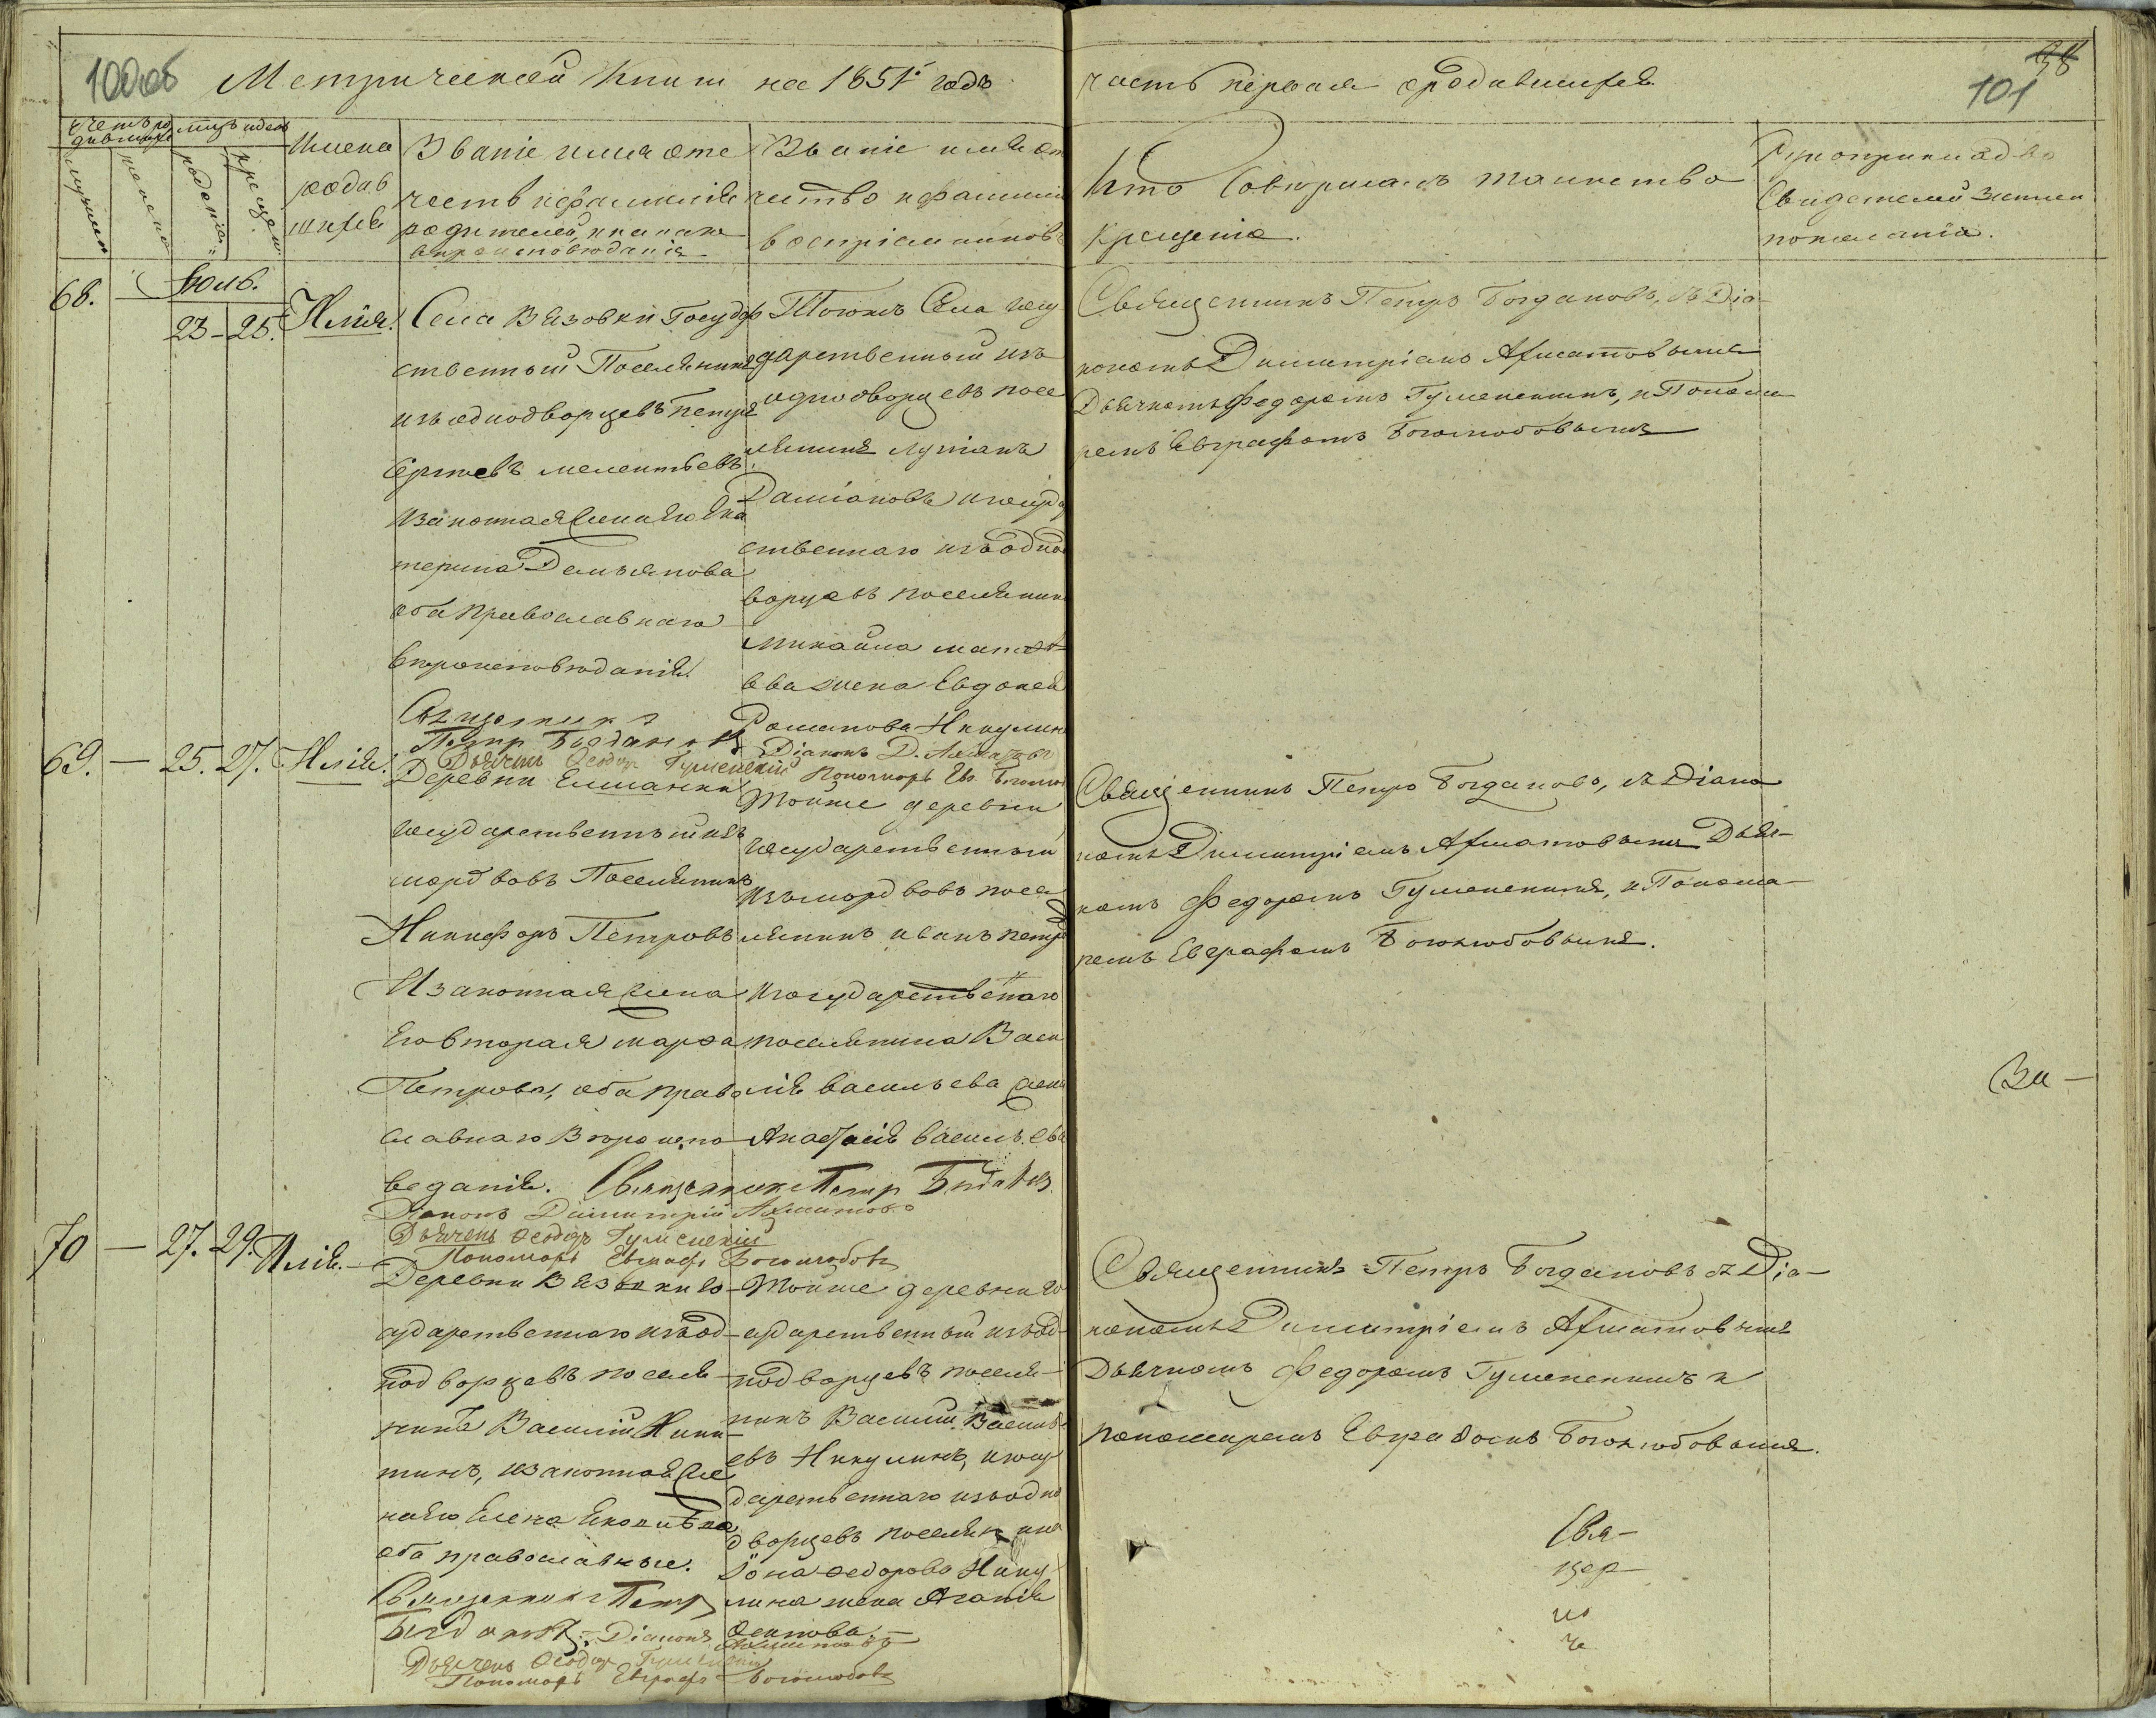 100об Метрической книги на 1851 годъ часть первая о родившихся
101
Счетъ родившихся
мужеска
женска
рожденія
крещенія
Имена родившихся
Званіе имя отечество и фамилія родителей, и какого вѣроисповѣданія
Званіе имя отчество и фамилія воспріемниковъ
Кто совершалъ таинство крещенія.
Рукоприкладство свидетелей записи по желанію.
Іюль.
68.
23-25.
Илія.
Села Вязовки Государ
ственный Поселянинъ
изъ однодворцевъ Петръ
Сергѣевъ Мелентьевъ
И законная жена его Ека
терина Демьянова
оба православнаго
вѣроисповѣданія.
Священникъ
Петръ Богдановъ
Дьячекъ Ѳеодоръ Гуменскій
Тогожъ Села госу
дарственный изъ
однодворцевъ посе
лянинъ Лукіанъ
Даміановъ и госуда
ственнаго изъ одно
ворцевъ поселянина
Михайла
ева жена Евдокея
Романова Никулина
Діаконъ Д. Ахматовъ
Пономарь Евг. Боголюб
Священникъ Петръ Богдановъ, съ Діа-
кономъ Димитріемъ Ахматовымъ
Дьячкомъ Федоромъ Гуменскимъ, и Понома
ремъ Евграфомъ Боголюбовымъ
69. — 25. 27. Илія.
Деревни Елшанки
государственный изъ
мордвовъ Поселянинъ
Никифоръ Петровъ
И законная жена
Его вторая Марѳа
Петрова, оба право
славнаго вѣроиспо
веданія. Священникъ Петръ Богдановъ
Діаконъ Димитрій Ахматовъ
Дьячекъ Ѳеодоръ Гуменскій
Пономарь Евграфъ Боголюбовъ
Тойже деревни
государственный
изъ мордвовъ посе
лянинъ Иванъ Петро
И государственнаго
поселянина Васи
лія Васильева жена
Анастасія Васильева
Священникъ Петръ Богдановъ, съ Діако
номъ Димитріемъ Ахматовымъ Дьяч-
комъ Федоромъ Гуменскимъ, и Понома-
ремъ Евграфомъ Боголюбовымъ.
За —
70 — 27. 29. Илія.
Деревни Вязовки го-
сударственнаго изъ од-
нодворцевъ поселя-
нинъ Василій Ники-
тинъ, и законная же
на его Елена
оба православные.
Священникъ Петръ
Богдановъ. Діаконъ Ахматовъ
Дьячекъ Ѳеодоръ Гуменскій
Пономарь Евграфъ Боголюбовъ
Тойже деревни го
сударственный изъ од-
нодворцевъ поселя-
нинъ Василій Василь
евъ Никулинъ, и госу
дарственнаго изъ одно
дворцевъ поселянина
Іона Федорова Нику
лина жена Агафія
Осипова
Священникъ Петръ Богдановъ съ Діа-
кономъ Димитріемъ Ахматовымъ
Дьячкомъ Федоромъ Гуменскимъ и
Пономаремъ Евграфомъ Боголюбовымъ.
Свя-
щен-